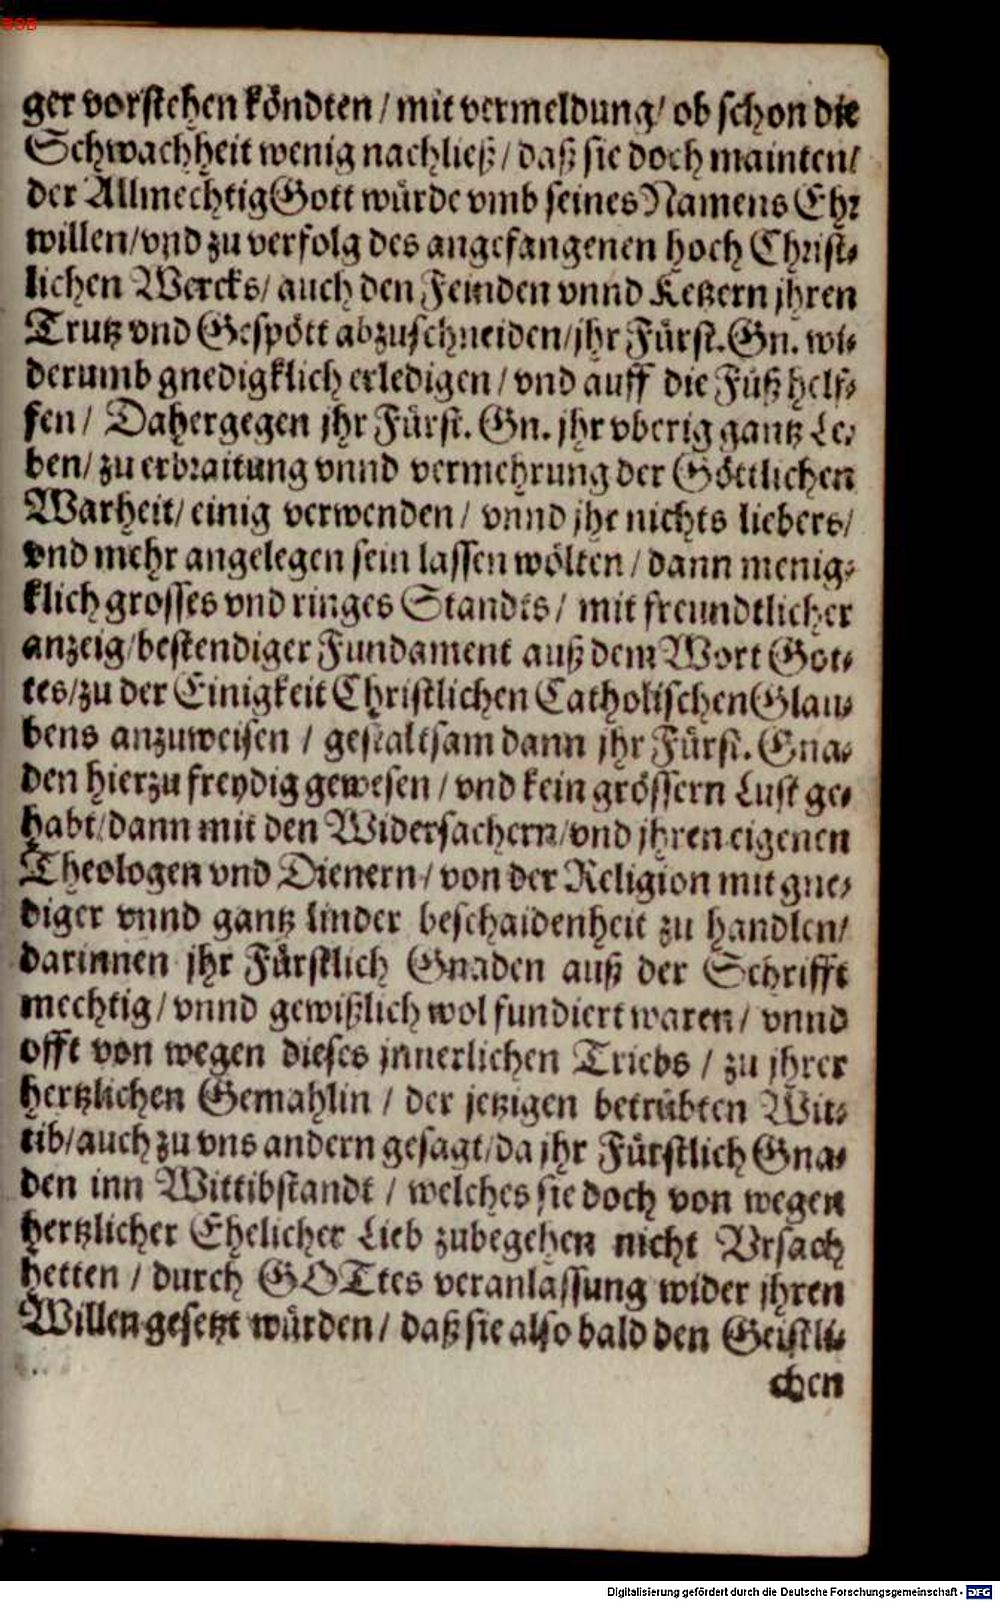 BSB
ger vorstehen köndten / mit vermeldung / ob schon die
Schwachheit wenig nachließ / daß sie doch mainten /
der Allmechtig Gott würde vmb seines Namens Ehr
willen / vnd zu verfolg des angefangenen hoch Christ-
lichen Wercks / auch den Feinden vnnd Ketzern jhren
Trutz vnd Gespött abzuschneiden / jhr Fürst. Gn. wi-
derumb gnedigklich erledigen / vnd auff die Füß helf-
fen / Dahergegen jhr Fürst. Gn. jhr vberig gantz Le-
ben / zu erbraitung vnnd vermehrung der Göttlichen
Warheit / einig verwenden / vnnd jhr nichts liebers /
vnd mehr angelegen sein lassen wölten / dann menig-
klich grosses vnd ringes Standts / mit freundtlicher
anzeig / bestendiger Fundament auß dem Wort Got-
tes / zu der Einigkeit Christlichen Catholischen Glau-
bens anzuweisen / gestaltsam dann jhr Fürst. Gna-
den hierzu freydig gewesen / vnd kein grössern Lust ge-
habt / dann mit den Widersachern / vnd jhren eigenen
Theologen vnd Dienern / von der Religion mit gne-
diger vnnd gantz linder beschaidenheit zu handlen /
darinnen jhr Fürstlich Gnaden auß der Schrifft
mechtig / vnnd gewißlich wol fundiert waren / vnnd
offt von wegen dieses jnnerlichen Triebs / zu jhrer
hertzlichen Gemahlin / der jetzigen betrübten Wit-
tib / auch zu vns andern gesagt / da jhr Fürstlich Gna-
den inn Wittibstandt / welches sie doch von wegen
hertzlicher Ehelicher Lieb zubegehen nicht Vrsach
hetten / durch GOTtes veranlassung wider jhren
Willen gesetzt würden / daß sie also bald den Geistli-
chen
Digitalisierung gefördert durch die Deutsche Forschungsgemeinschaft - DFG